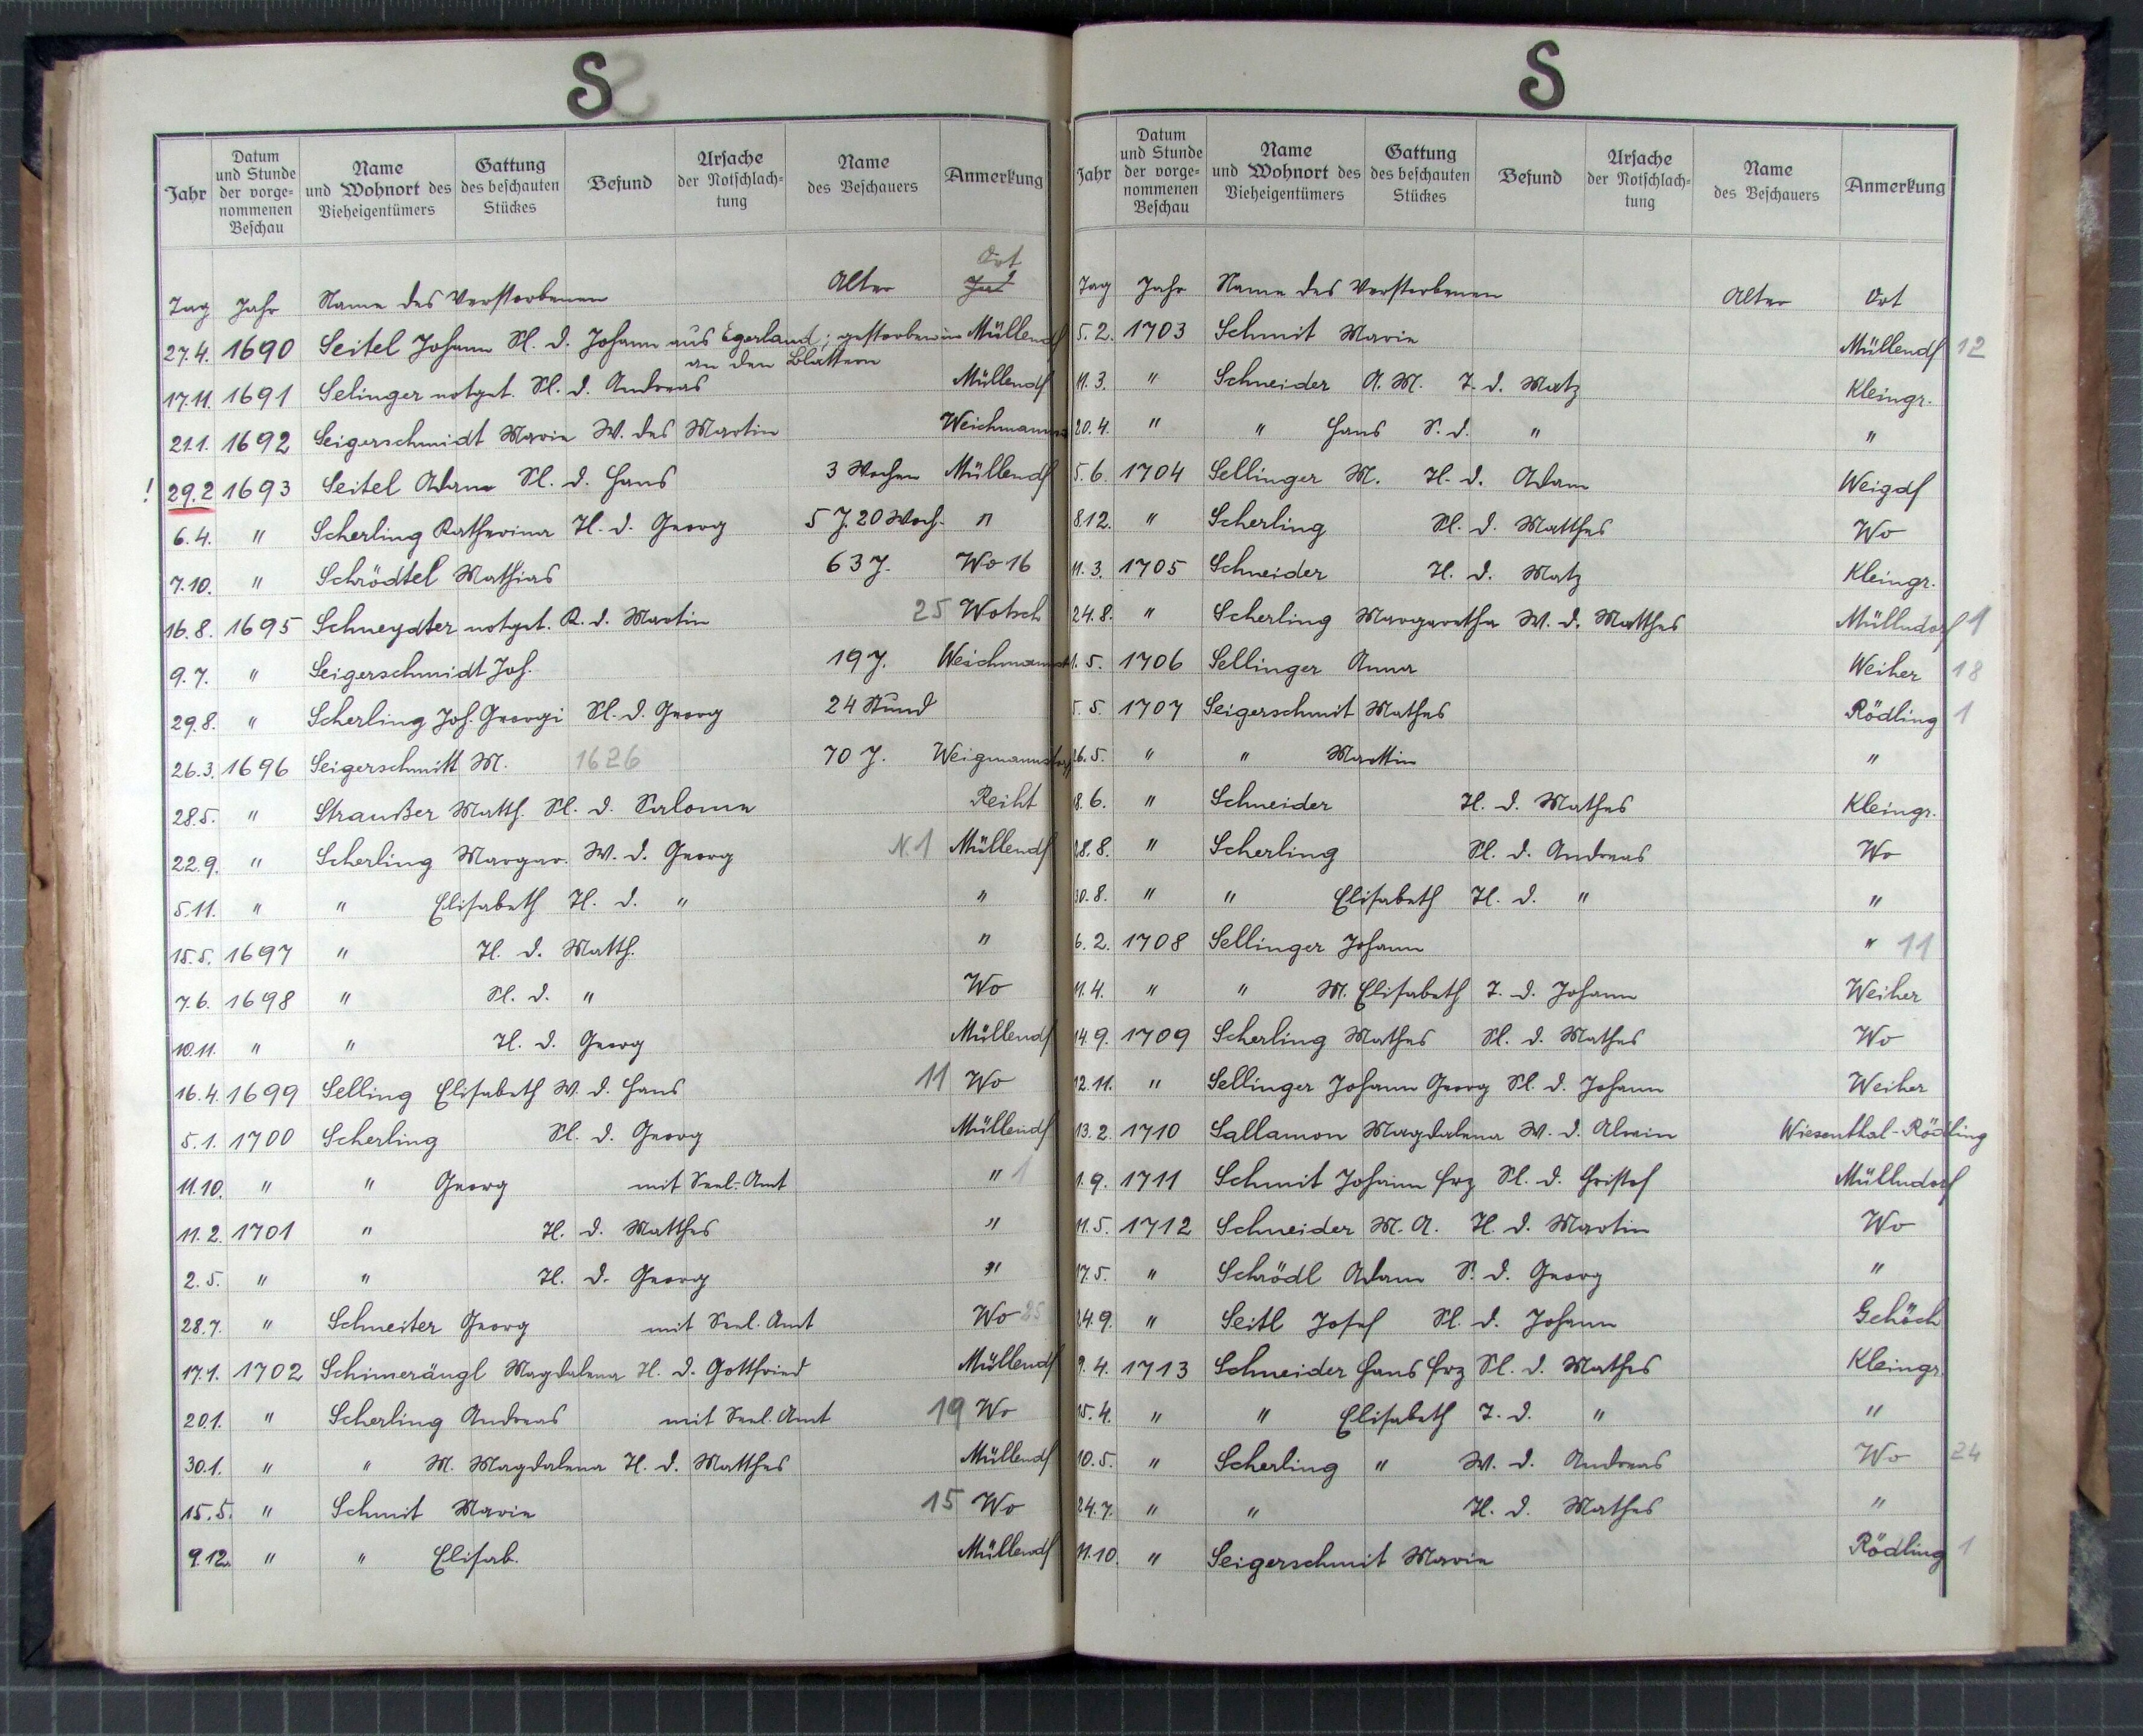 S
Jahr Datum und Stunde der vorge-nommenen Beschau Name und Wohnort des Vieheigentümers Gattung des beschauten Stückes Befund Ursache der Notschlach-tung Name des Beschauers Anmerkung
Ort
Tag Jahr Name des Verstorbenen Alter
27.4. 1690 Seitel Johann Sl. d. Johann aus Egerland; gestorben in Müllendf
an den Blattern
17.11. 1691 Selinger notget. Sl. d. Andreas Müllendf
21.1. 1692 Seigerschmidt Marie W. des Martin Weichmanns
! 29.2 1693 Seitel Adam Sl. d. Hans 3 Wochen Müllendf
6.4. " Scherling Katherina Tl. d. Georg 5 J. 20 Woch. "
7.10. " Schrödtel Mathias 63 J. Wo 16
16.8. 1695 Schneydter notget. K. d. Martin 25 Wotsch
9.7. " Seigerschmidt Joh. 19 J. Weichmannsd
29.8. " Scherling Joh. Georgi Sl. d. Georg 24 Stund
26.3. 1696 Seigerschmitt M. 1626 70 J. Weigmannsdorf
28.5. " Straußer Matth. Sl. d. Salome Reiht
22.9. " Scherling Margar. W. d. Georg N. 1 Müllendf
5.11. " " Elisabeth Tl. d. " "
15.5. 1697 " Tl. d. Matth. "
7.6. 1698 " Sl. d. " Wo
10.11. " " Tl. d. Georg Müllendf
16.4. 1699 Selling Elisabeth W. d. Hans 11 Wo
5.1. 1700 Scherling Sl. d. Georg Müllendf
11.10. " " Georg mit Seel-Amt " 1
11.2. 1701 " Tl. d. Matthes "
2.5. " " Tl. d. Georg "
28.7. " Schneiter Georg mit Seel. Amt Wo 25
17.1. 1702 Schimerängl Magdalena Tl. d. Gottfried Müllendf
20.1. " Scherling Andreas mit Seel. Amt 19 Wo
30.1. " " M. Magdalena Tl. d. Matthes Müllendf
15.5. " Schmit Marie 15 Wo
9.12. " " Elisab. Müllendf
S
Jahr Datum und Stunde der vorge-nommenen Beschau Name und Wohnort des Vieheigentümers Gattung des beschauten Stückes Befund Ursache der Notschlach-tung Name des Beschauers Anmerkung
Tag Jahr Name des Verstorbenen Alter Ort
5.2. 1703 Schmit Marie Müllendf 12
11.3. " Schneider A. M. T. d. Matz Kleingr.
20.4. " " Hans S. d. " "
5.6. 1704 Sellinger M. Tl. d. Adam Weigdf
8.12. " Scherling Sl. d. Matthes Wo
11.3. 1705 Schneider Tl. d. Matz Kleingr.
24.8. " Scherling Margaretha W. d. Matthes Müllndorf 1
1.5. 1706 Sellinger Anna Weiher 18
5.5. 1707 Seigerschmit Mathes Rödling 1
26.5. " " Martin "
8.6. " Schneider Tl. d. Mathes Kleingr.
28.8. " Scherling Sl. d. Andreas Wo
30.8. " " Elisabeth Tl. d. " "
6.2. 1708 Sellinger Johann " 11
11.4. " " M. Elisabeth T. d. Johann Weiher
14.9. 1709 Scherling Mathes Sl. d. Mathes Wo
12.11. " Sellinger Johann Georg Sl. d. Johann Weiher
13.2. 1710 Sallamon Magdalena W. d. Alwin Wiesenthal-Rödling
1.9. 1711 Schmit Johann Frz Sl. d. Christof Müllndorf
11.5. 1712 Schneider M. A. Tl. d. Martin Wo
17.5. " Schrödl Adam S. d. Georg "
24.9. " Seitl Josef Sl. d. Johann Gehöch
9.4. 1713 Schneider Hans Frz Sl. d. Mathes Kleingr.
15.4. " " Elisabeth T. d. " "
10.5. " Scherling " W. d. Andreas Wo 24
24.7. " " Tl. d. Mathes "
11.10. " Seigerschmit Marie Rödling 1